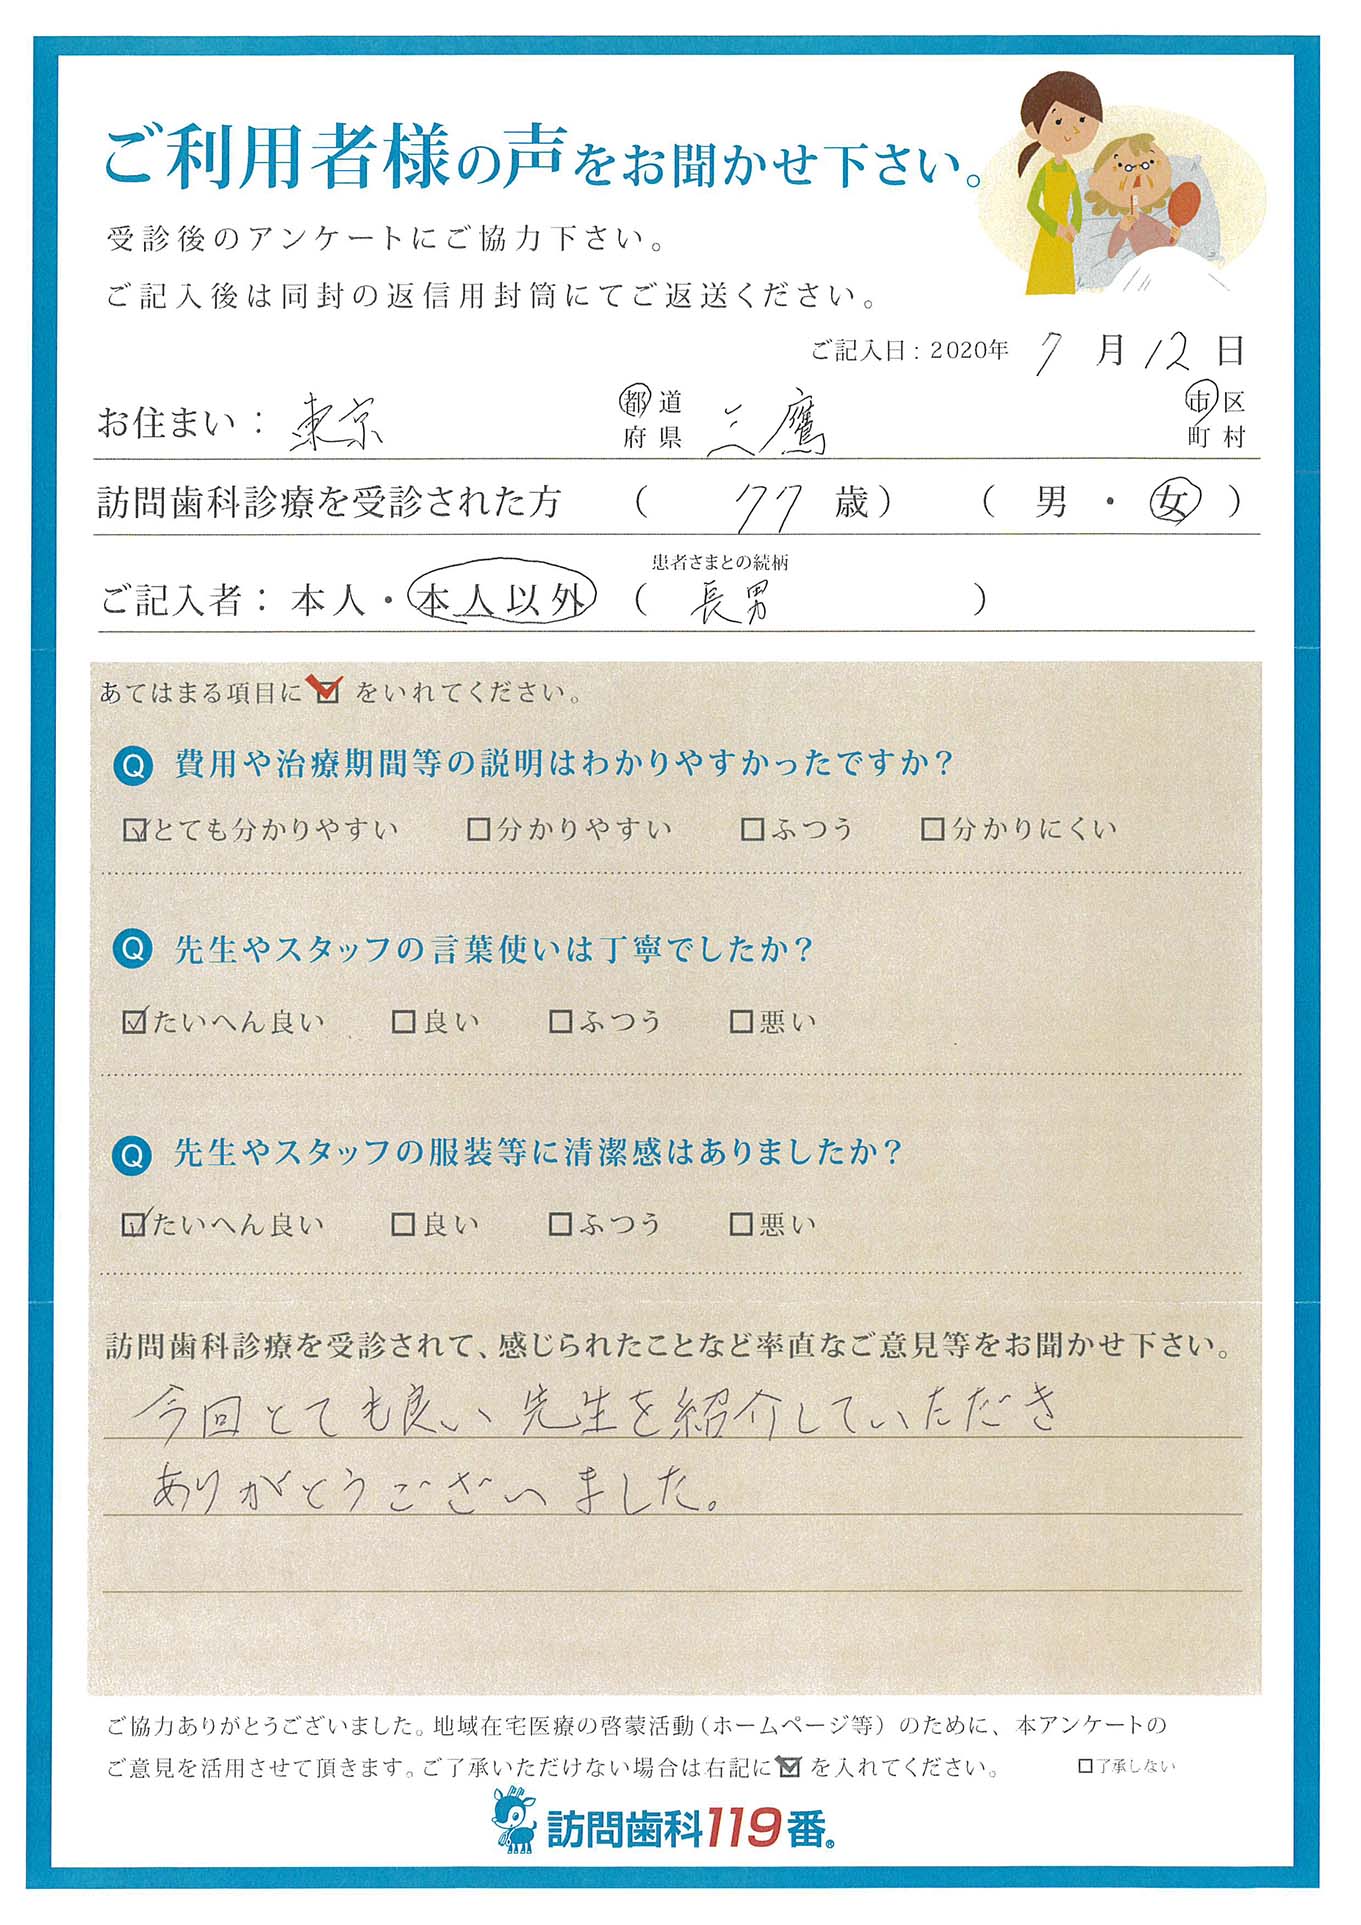 ご利用者様の声をお聞かせ下さい。
受診後のアンケートにご協力下さい。
ご記入後は同封の返信用封筒にてご返送ください。
ご記入日：2020年 7 月 12 日
お住まい： 東京 都道府県 三鷹 市区町村
訪問歯科診療を受診された方 （ 77 歳） （ 男 ・ 女 ）
患者さまとの続柄
ご記入者：本人・本人以外 （ 長男 ）
あてはまる項目に☑をいれてください。
Q 費用や治療期間等の説明はわかりやすかったですか？
☑とても分かりやすい □分かりやすい □ふつう □分かりにくい
Q 先生やスタッフの言葉使いは丁寧でしたか？
☑たいへん良い □良い □ふつう □悪い
Q 先生やスタッフの服装等に清潔感はありましたか？
☑たいへん良い □良い □ふつう □悪い
訪問歯科診療を受診されて、感じられたことなど率直なご意見等をお聞かせ下さい。
今回とても良い先生を紹介していただき
ありがとうございました。
ご協力ありがとうございました。地域在宅医療の啓蒙活動（ホームページ等）のために、本アンケートの
ご意見を活用させて頂きます。ご了承いただけない場合は右記に☑を入れてください。 □了承しない
訪問歯科119番®